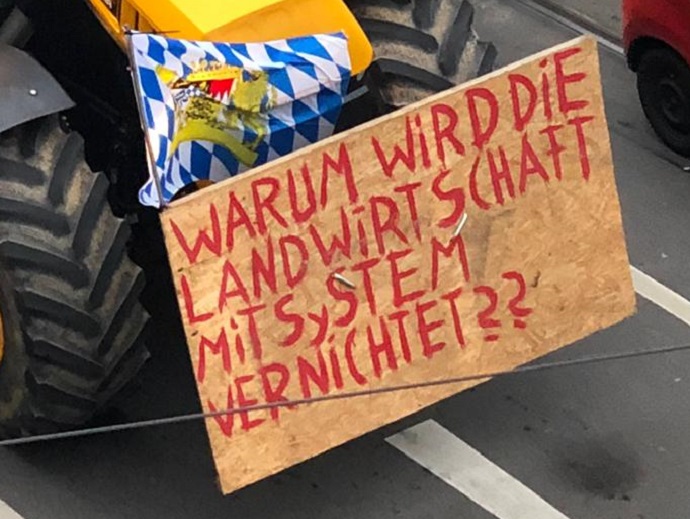 WARUM WiRD DiE
LANDWiRTSCHAFT
MiT SySTEM
VERNiCHTET??